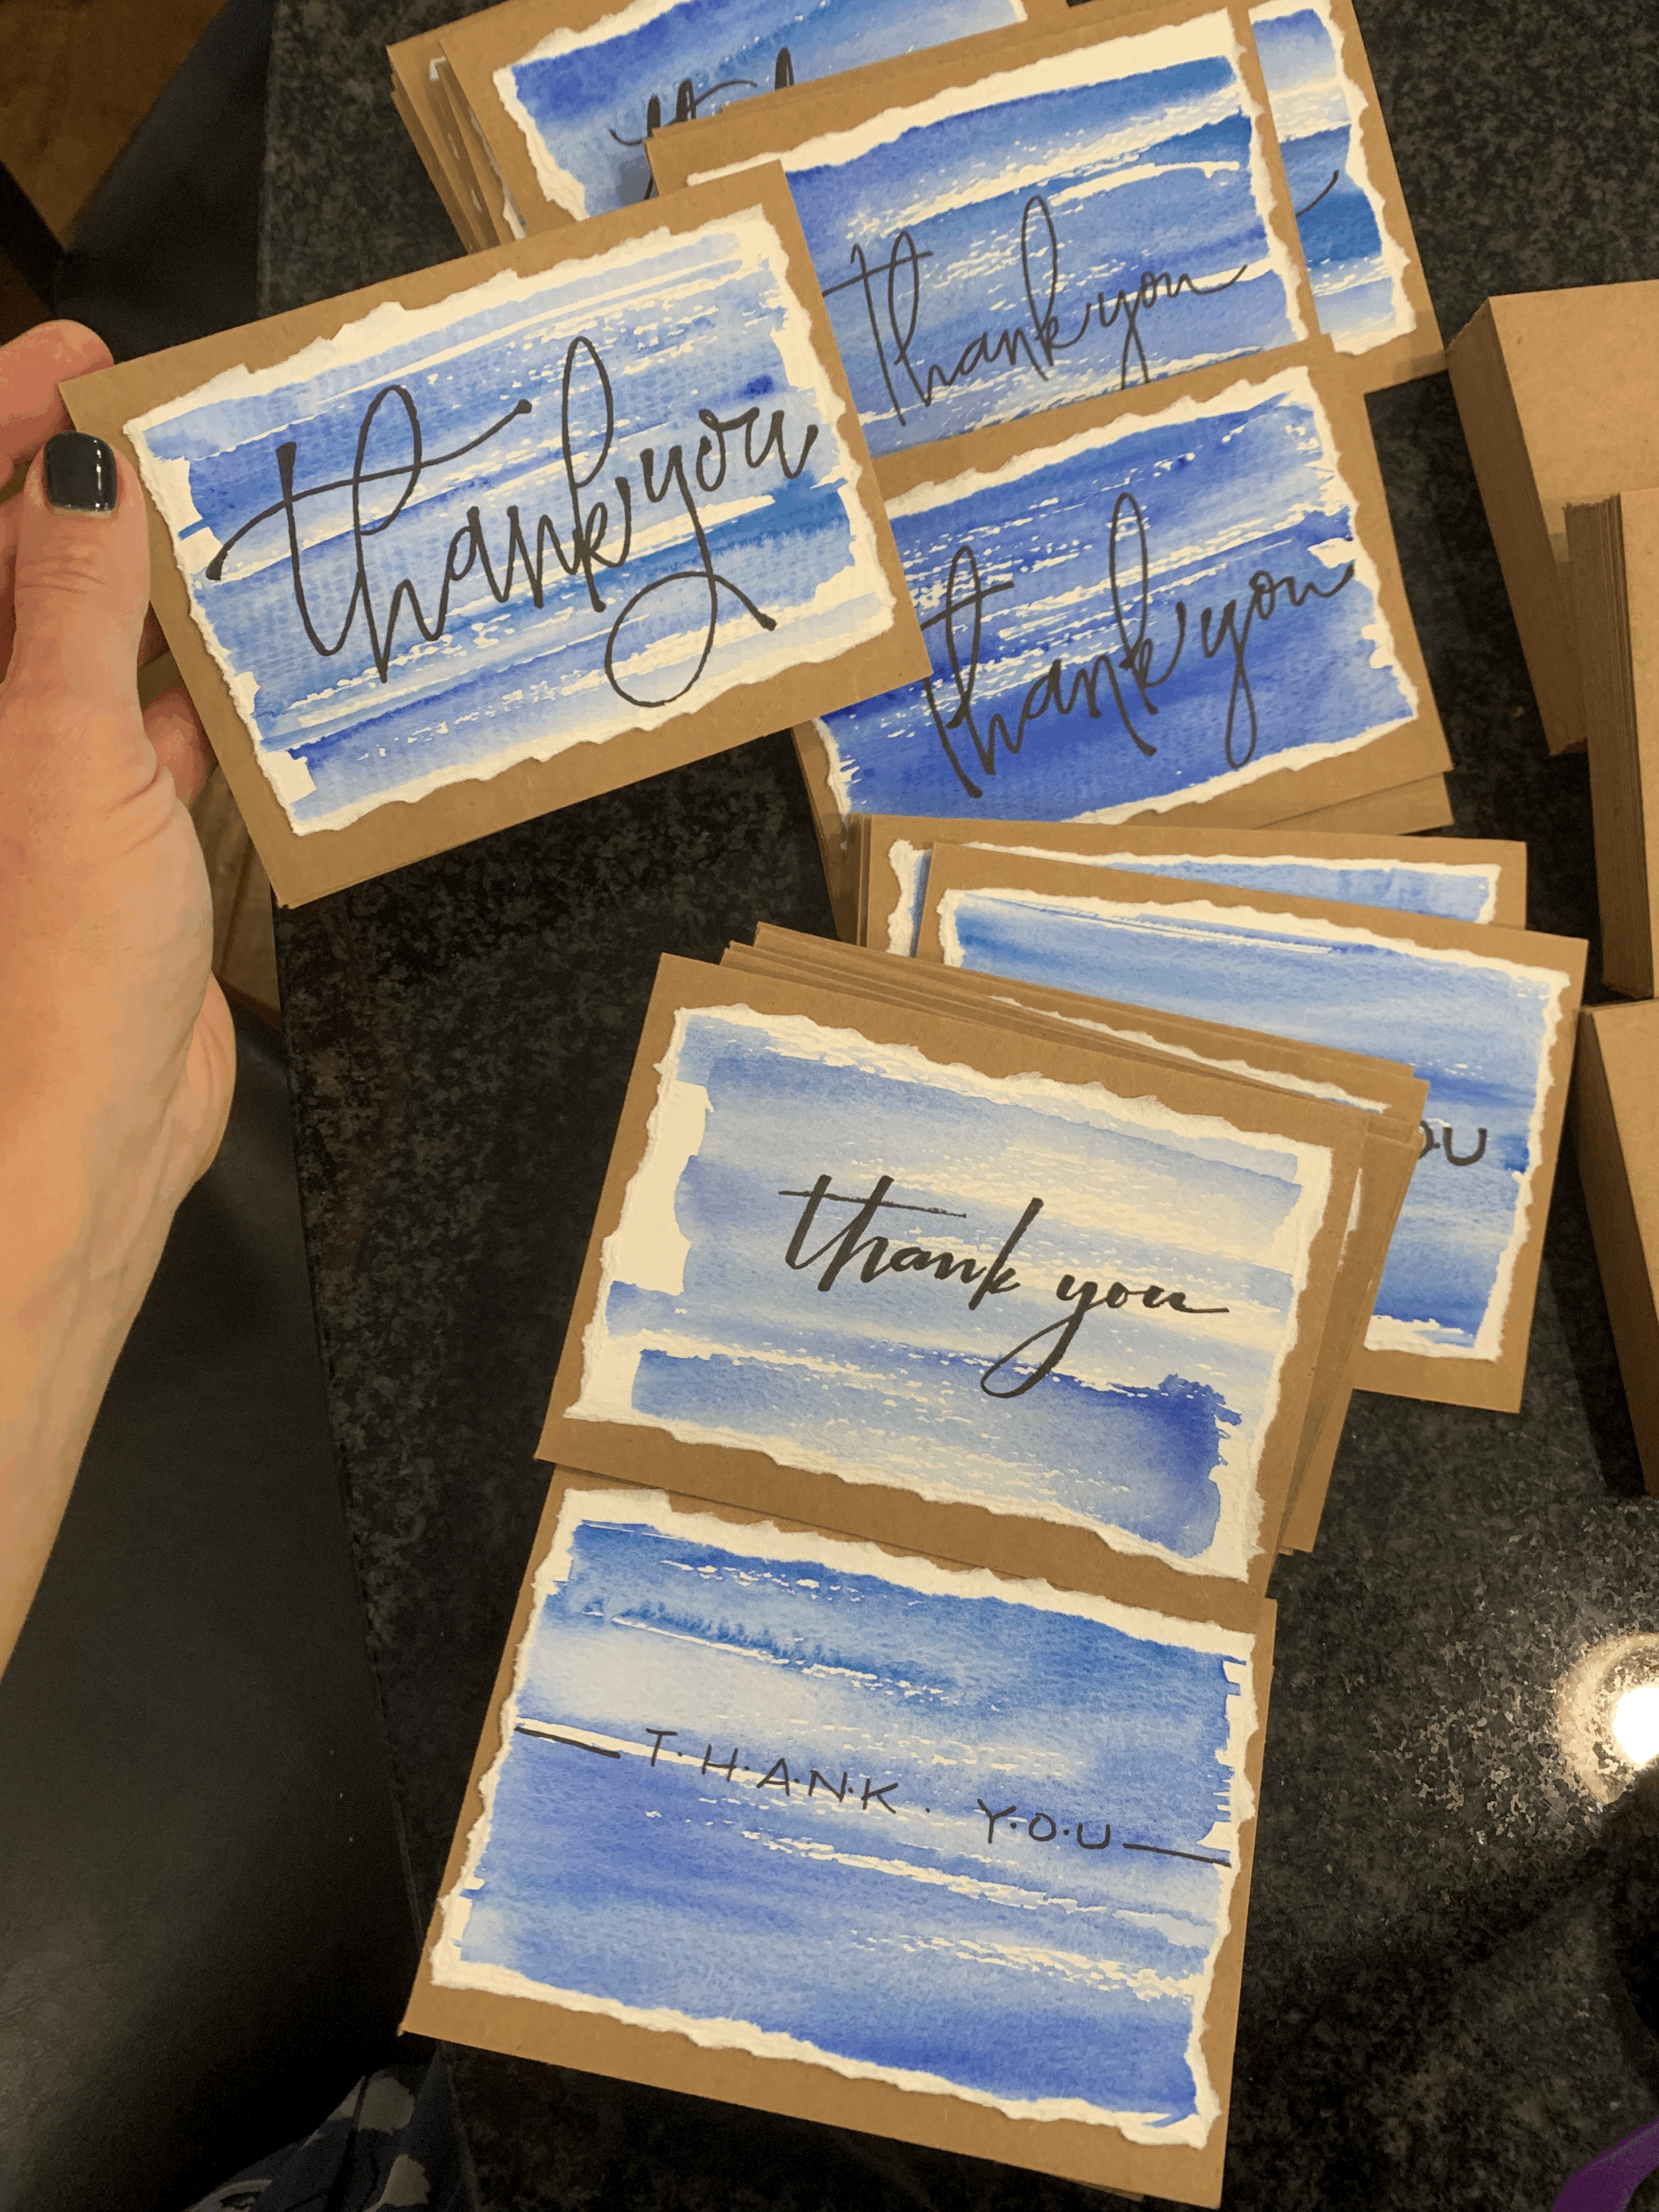 thank you
thank you
thank you
thank you
T·H·A·N·K· Y·O·U